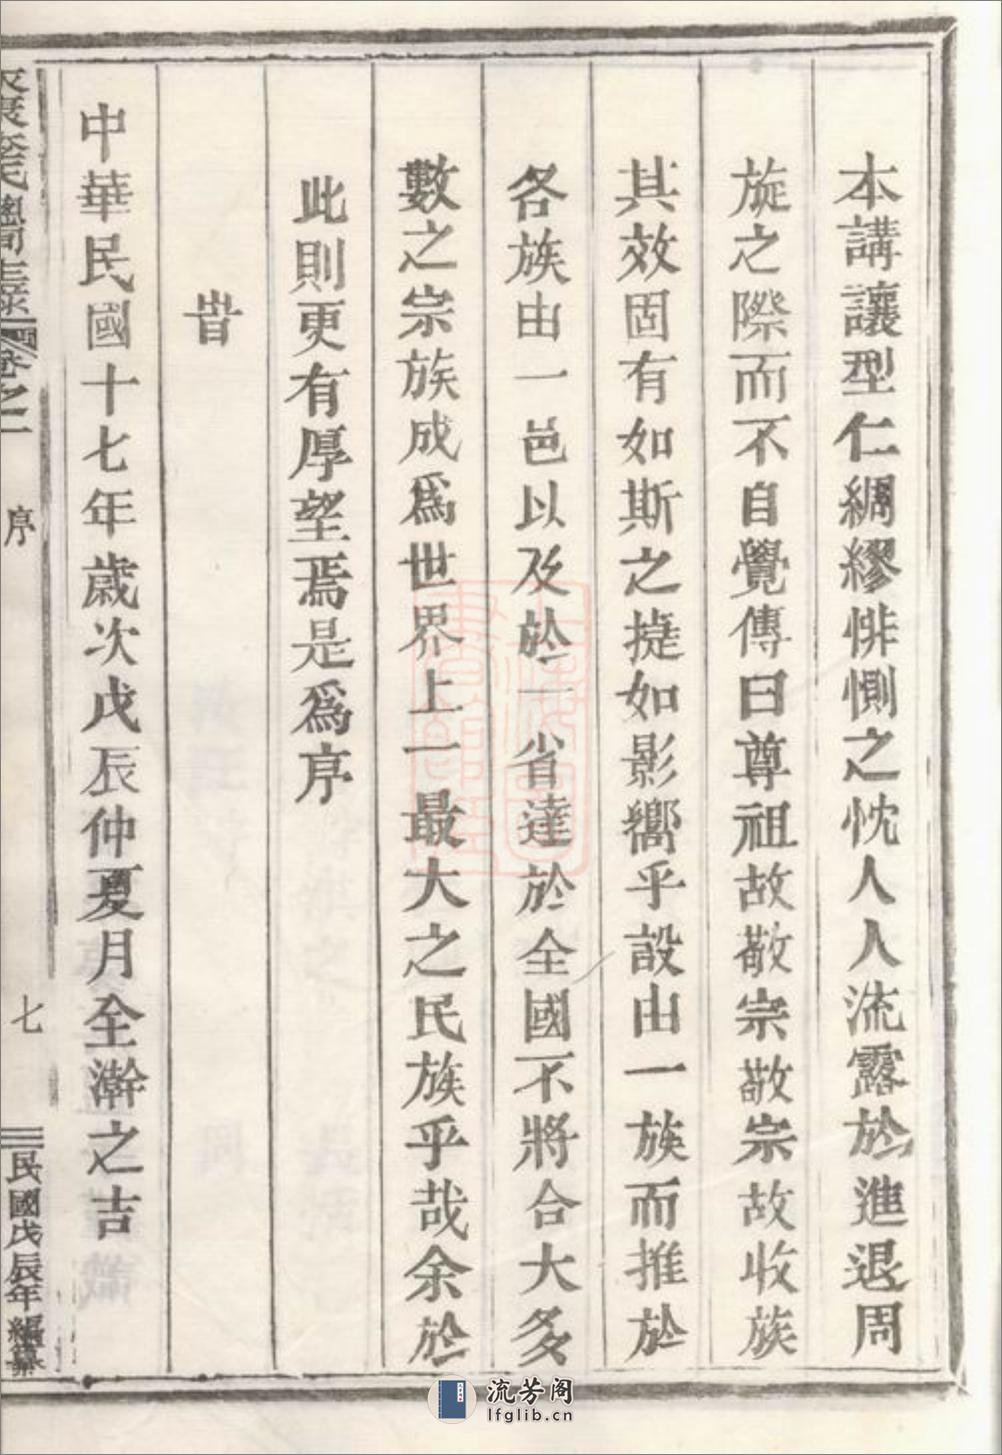 本講讓型仁綢繆悱惻之忱人人流露於進退周
旋之際而不自覺傳曰尊祖故敬宗敬宗故收族
其效固有如斯之捷如影嚮乎設由一族而推於
各族由一邑以及於一省達於全國不將合大多
數之宗族成爲世界上一最大之民族乎哉余於
此則更有厚望焉是爲序
旹
中華民國十七年歲次戊辰仲夏月全澣之吉
卷之一 序 七 民國戊辰年編纂
流芳阁
lfglib.cn